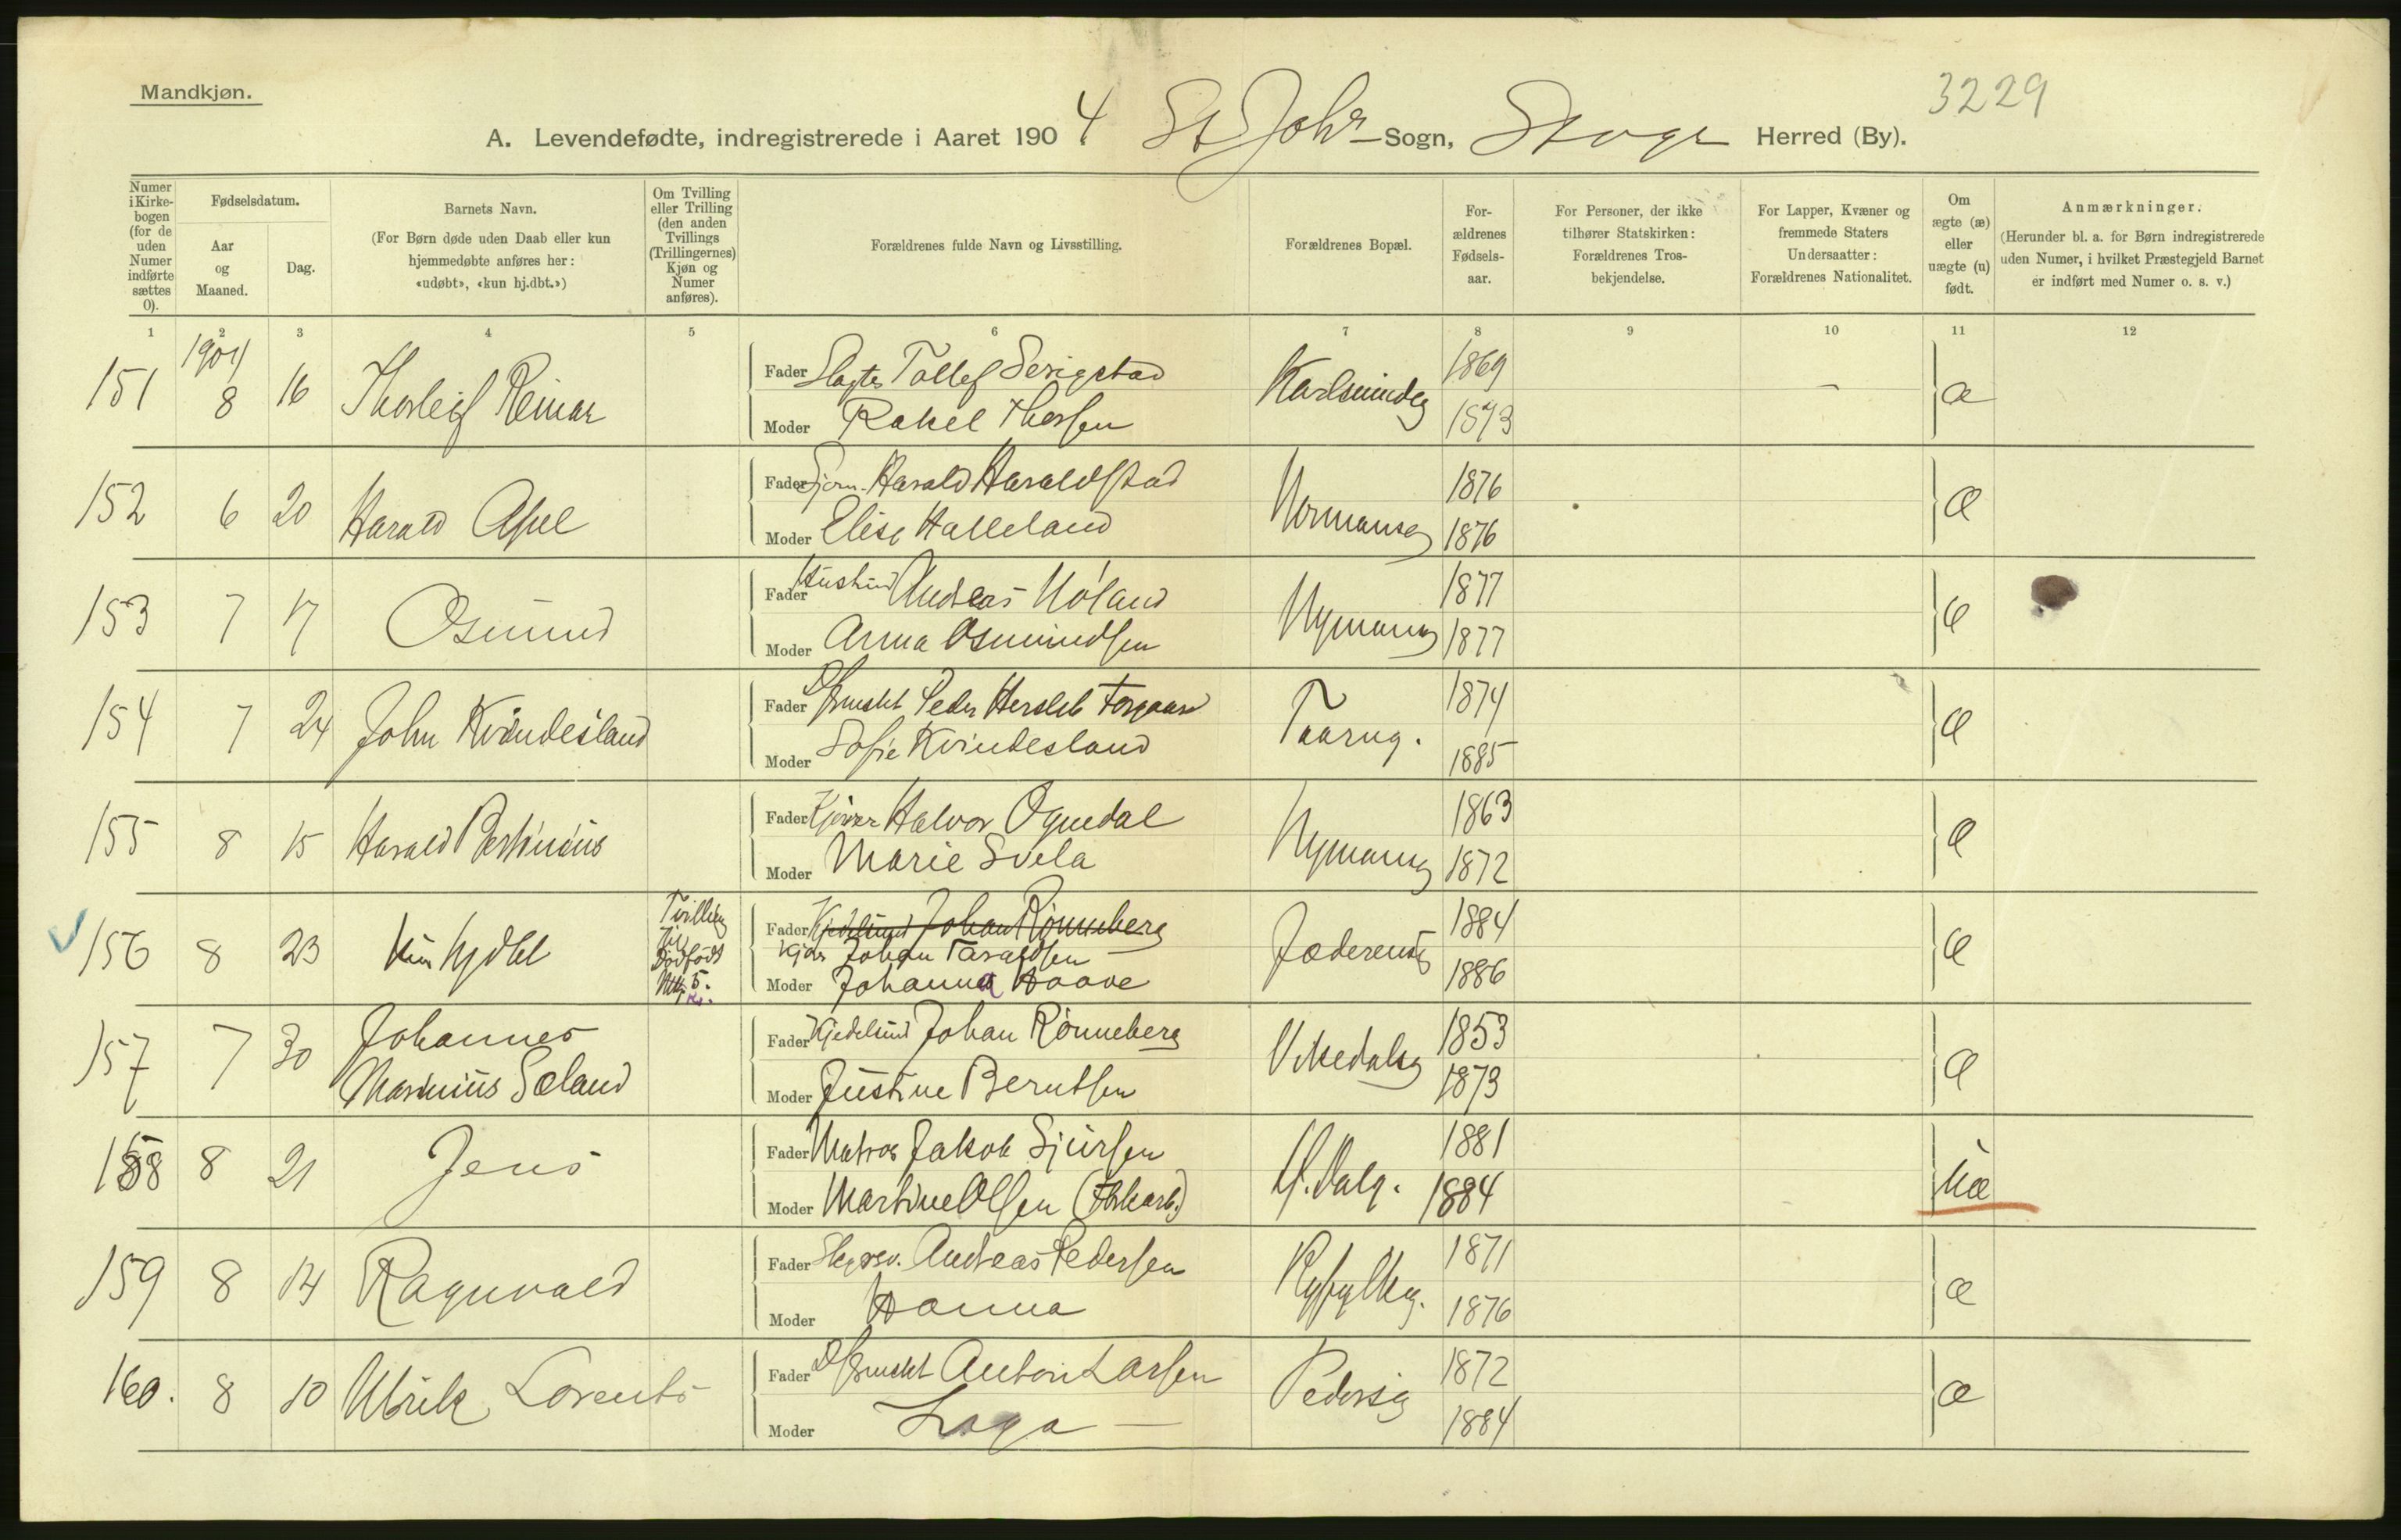 Mandkjøn.
3229
A. Levendefødte, indregistrerede i Aaret 1904 St Joh. Sogn, Stvgr Herred (By).
Numer i Kirkebogen (for de uden Numer indførte sættes 0).
Fødselsdatum.
Aar og Maaned.
Dag.
Barnets Navn.
(For Børn døde uden Daab eller kun hjemmedøbte anføres her: «udøbt», «kun hj.dbt.»)
Om Tvilling eller Trilling (den anden Tvillings (Trillingernes) Kjøn og Numer anføres).
Forældrenes fulde Navn og Livsstilling.
Forældrenes Bopæl.
For-ældrenes Fødsels-aar.
For Personer, der ikke tilhører Statskirken: Forældrenes Tros-bekjendelse.
For Lapper, Kvæner og fremmede Staters Undersaatter: Forældrenes Nationalitet.
Om ægte (æ) eller uægte (u) født.
Anmærkninger.
(Herunder bl. a. for Børn indregistrerede uden Numer, i hvilket Præstegjeld Barnet er indført med Numer o. s. v.)
1 2 3 4 5 6 7 8 9 10 11 12
1904
151 8 16 Thorleif Reimar Fader Slagter Tollef Serigstad Karlsmindeg 1869 – æ
Moder Rakel Thorsen 1873
152 6 20 Harald Axel Fader Sjøm. Harald Haraldstad Normansg 1876 æ
Moder Elise Halleland 1876
153 7 17 Osmund Fader Andreas Høland Nymansg 1877 æ
Moder Anna Osmundsen 1877
154 7 24 John Kvindesland Fader Peder Hersleb Torgaard Taarng. 1874 æ
Moder Sofie Kvindesland 1885
155 8 15 Harald Bertinius Fader Kjører Halvor Ognedal Nymansg 1863 æ
Moder Marie Svela 1872
156 8 23 kun hjdbt Tvilling til Dødfødt 5. Fader Kjedelsmed Johan Rønneberg Jæderensg 1884 æ
Kjører Johan Taraldsen
Moder Johanna Haave 1886
157 7 30 Johannes Marinius Sæland Fader Kjedelsmd Johan Rønneberg Vikedalsg 1853 æ
Moder Justine Berntsen 1873
158 8 21 Jens Fader Matros Jakob Sjursen 1881 uæ
Moder Martine Olsen (Fbkarb.) 1884
159 8 14 Ragnvald Fader Andreas Pedersen Ryfylkeg. 1871 æ
Moder Hanna 1876
160. 8 10 Ulrik Lorents Fader Anton Larsen Pedersg 1872 æ
Moder Laga – 1884